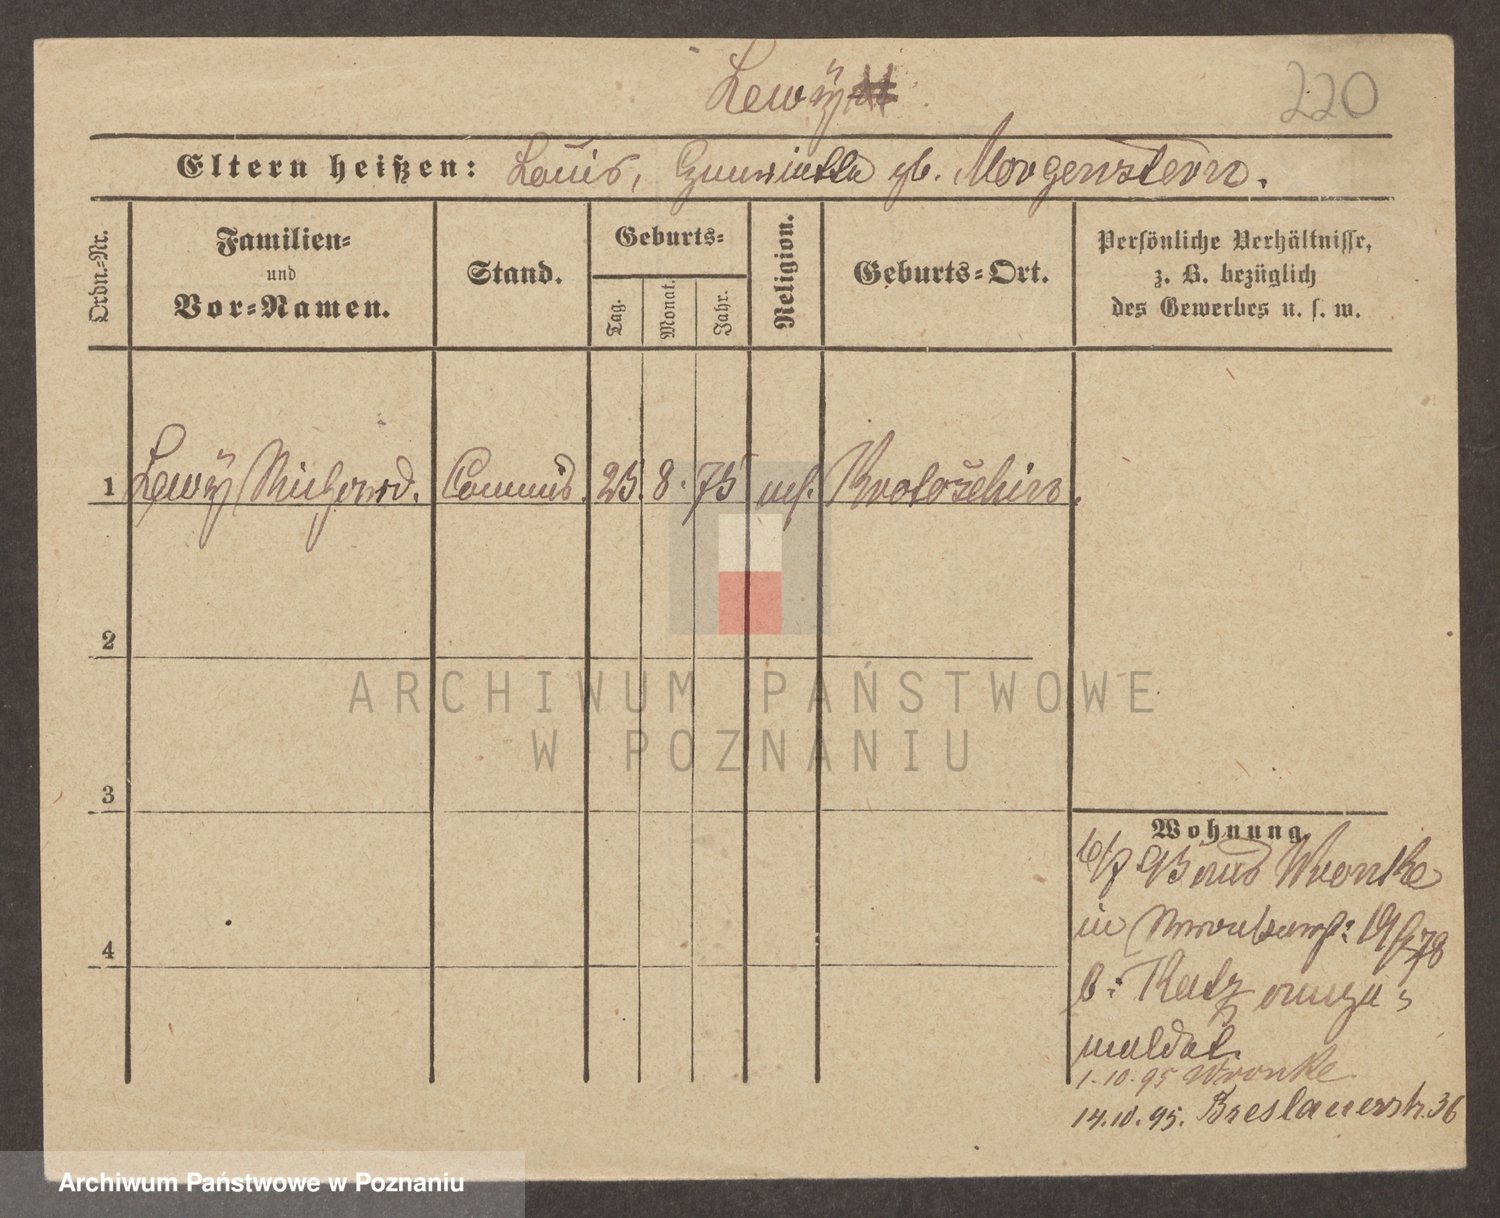 Lewÿ
220
Eltern heißen: Louis, Henriette geb. Morgenstern.
Ordn.-Nr.
Familien-
und
Vor-Namen.
Stand.
Geburts-
Tag.
Monat.
Jahr.
Religion.
Geburts-Ort.
Persönliche Verhältnisse,
z. B. bezüglich
des Gewerbes u. s. w.
1 Lewÿ Richard. Commis. 25. 8. 75 mos. Krotoschin.
2
3
4
ARCHIWUM PAŃSTWOWE
W POZNANIU
Wohnung.
6/7 95 aus Wronke
in
b: Katz ange-
meldet.
1.10.95 Wronke
14.10.95. Breslauerstr. 36
Archiwum Państwowe w Poznaniu